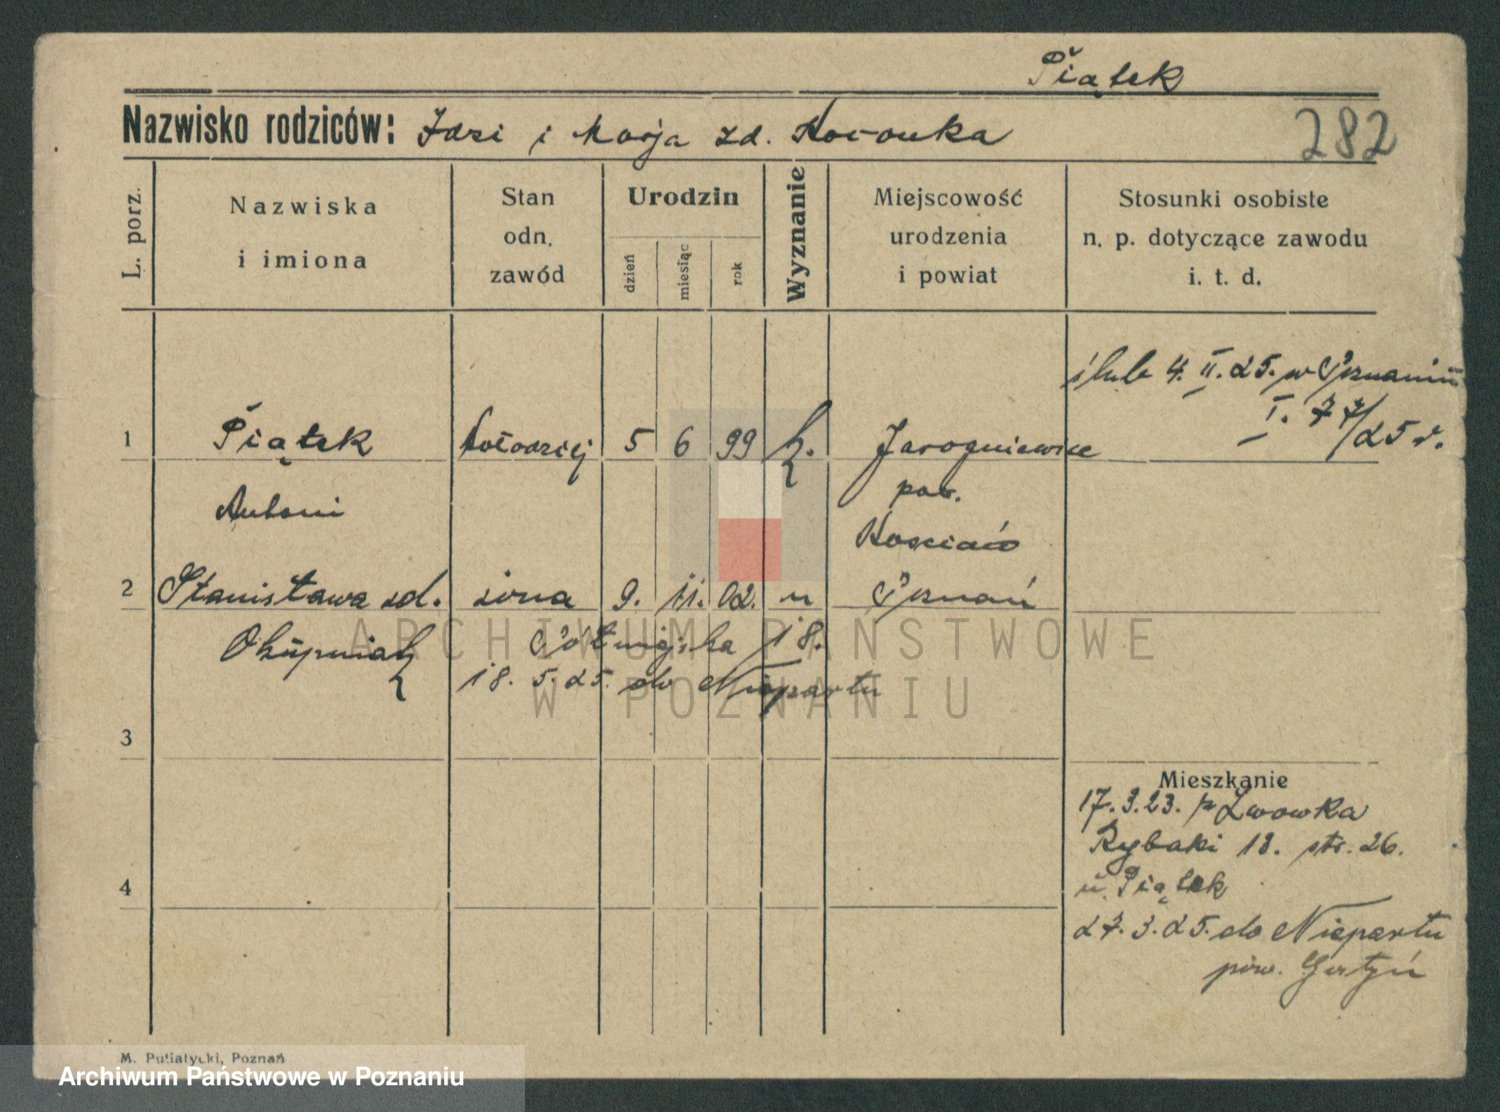 Piątek
Nazwisko rodziców: Idzi i Marja zd.
282
L. porz.
Nazwiska
i imiona
Stan
odn.
zawód
Urodzin
dzień
miesiąc
rok
Wyznanie
Miejscowość
urodzenia
i powiat
Stosunki osobiste
n. p. dotyczące zawodu
i. t. d.
ślub 4. II. 25. w Poznaniu
I. 77/25 r.
1 Piątek kołodziej 5 6 99 k. Jarogniewice
Antoni pow.
Kościan
2 Stanisława zd. żona 9. 11. 02. " Poznań
Okupniak Półwiejska 18.
18. 5. 25. do Niepartu
3
Mieszkanie
17. 3. 23. z Lwowka
Rybaki 12. str. 26.
u. Piątek
27. 3. 25. do Niepartu
pow. Gostyń
4
M. Putiatycki, Poznań
ARCHIWUM PAŃSTWOWE
W POZNANIU
Archiwum Państwowe w Poznaniu